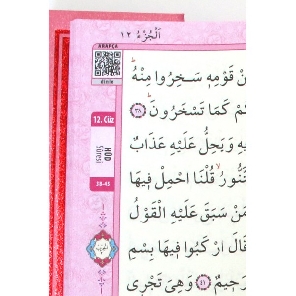 اَلْجُزْءُ ١٢
ARAPÇA
12. Cüz
HÛD
Sûresi
38-45
نْ قَوْمِهٖ سَخِرُوا مِنْهُ
كُمْ كَمَا تَسْخَرُونَ ٣٨
هِ وَيَحِلُّ عَلَيْهِ عَذَابٌ
تَّنُّورُ قُلْنَا احْمِلْ فٖيهَا
مَنْ سَبَقَ عَلَيْهِ الْقَوْلُ
قَالَ ارْكَبُوا فٖيهَا بِسْمِ
رَحٖيمٌ ٤١ وَهِيَ تَجْرٖي